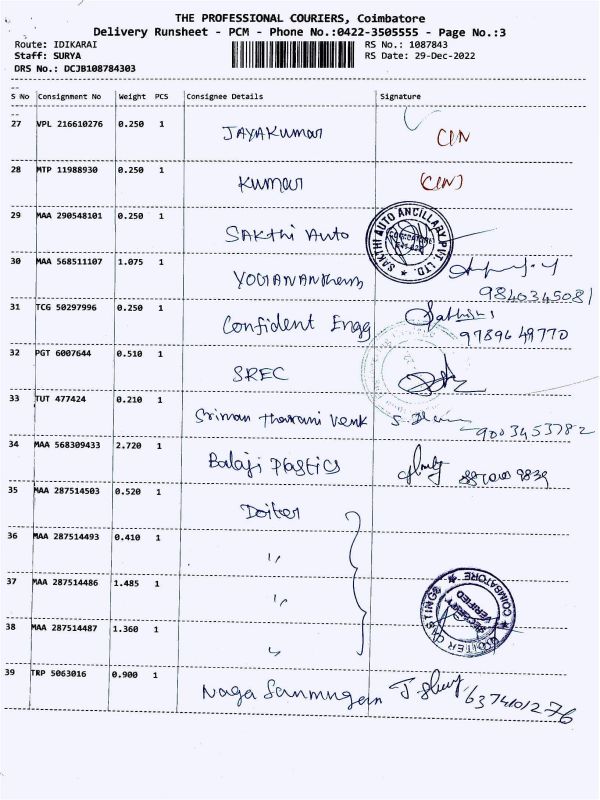 THE PROFESSIONAL COURIERS, Coimbatore
Delivery Runsheet - PCM - Phone No.:0422-3505555 - Page No.:3
Route: IDIKARAI RS No.: 1087843
Staff: SURYA RS Date: 29-Dec-2022
DRS No.: DCJB108784303
S No Consignment No Weight PCS Consignee Details Signature
27 VPL 216610276 0.250 1 JAYAKumar CIN
28 MTP 11988930 0.250 1 Kumar (CIN)
29 MAA 290548101 0.250 1 SAKthi Auto
SAKTHI AUTO ANCILLARY PVT. LTD.
COIMBATORE
30 MAA 568511107 1.075 1
9840345081
31 TCG 50297996 0.250 1 Confident Engg Sathish
97896 49770
32 PGT 6007644 0.510 1 SREC
33 TUT 477424 0.210 1 Sriman tharani Venk
9003453782
34 MAA 568309433 2.720 1 Balaji Plastics
35 MAA 287514503 0.520 1 Doiter
36 MAA 287514493 0.410 1 "
37 MAA 287514486 1.485 1 "
38 MAA 287514487 1.360 1 "
COIMBATORE
SECURITY
VERIFIED
39 TRP 5063016 0.900 1 Naga Sanmugan
6374101276